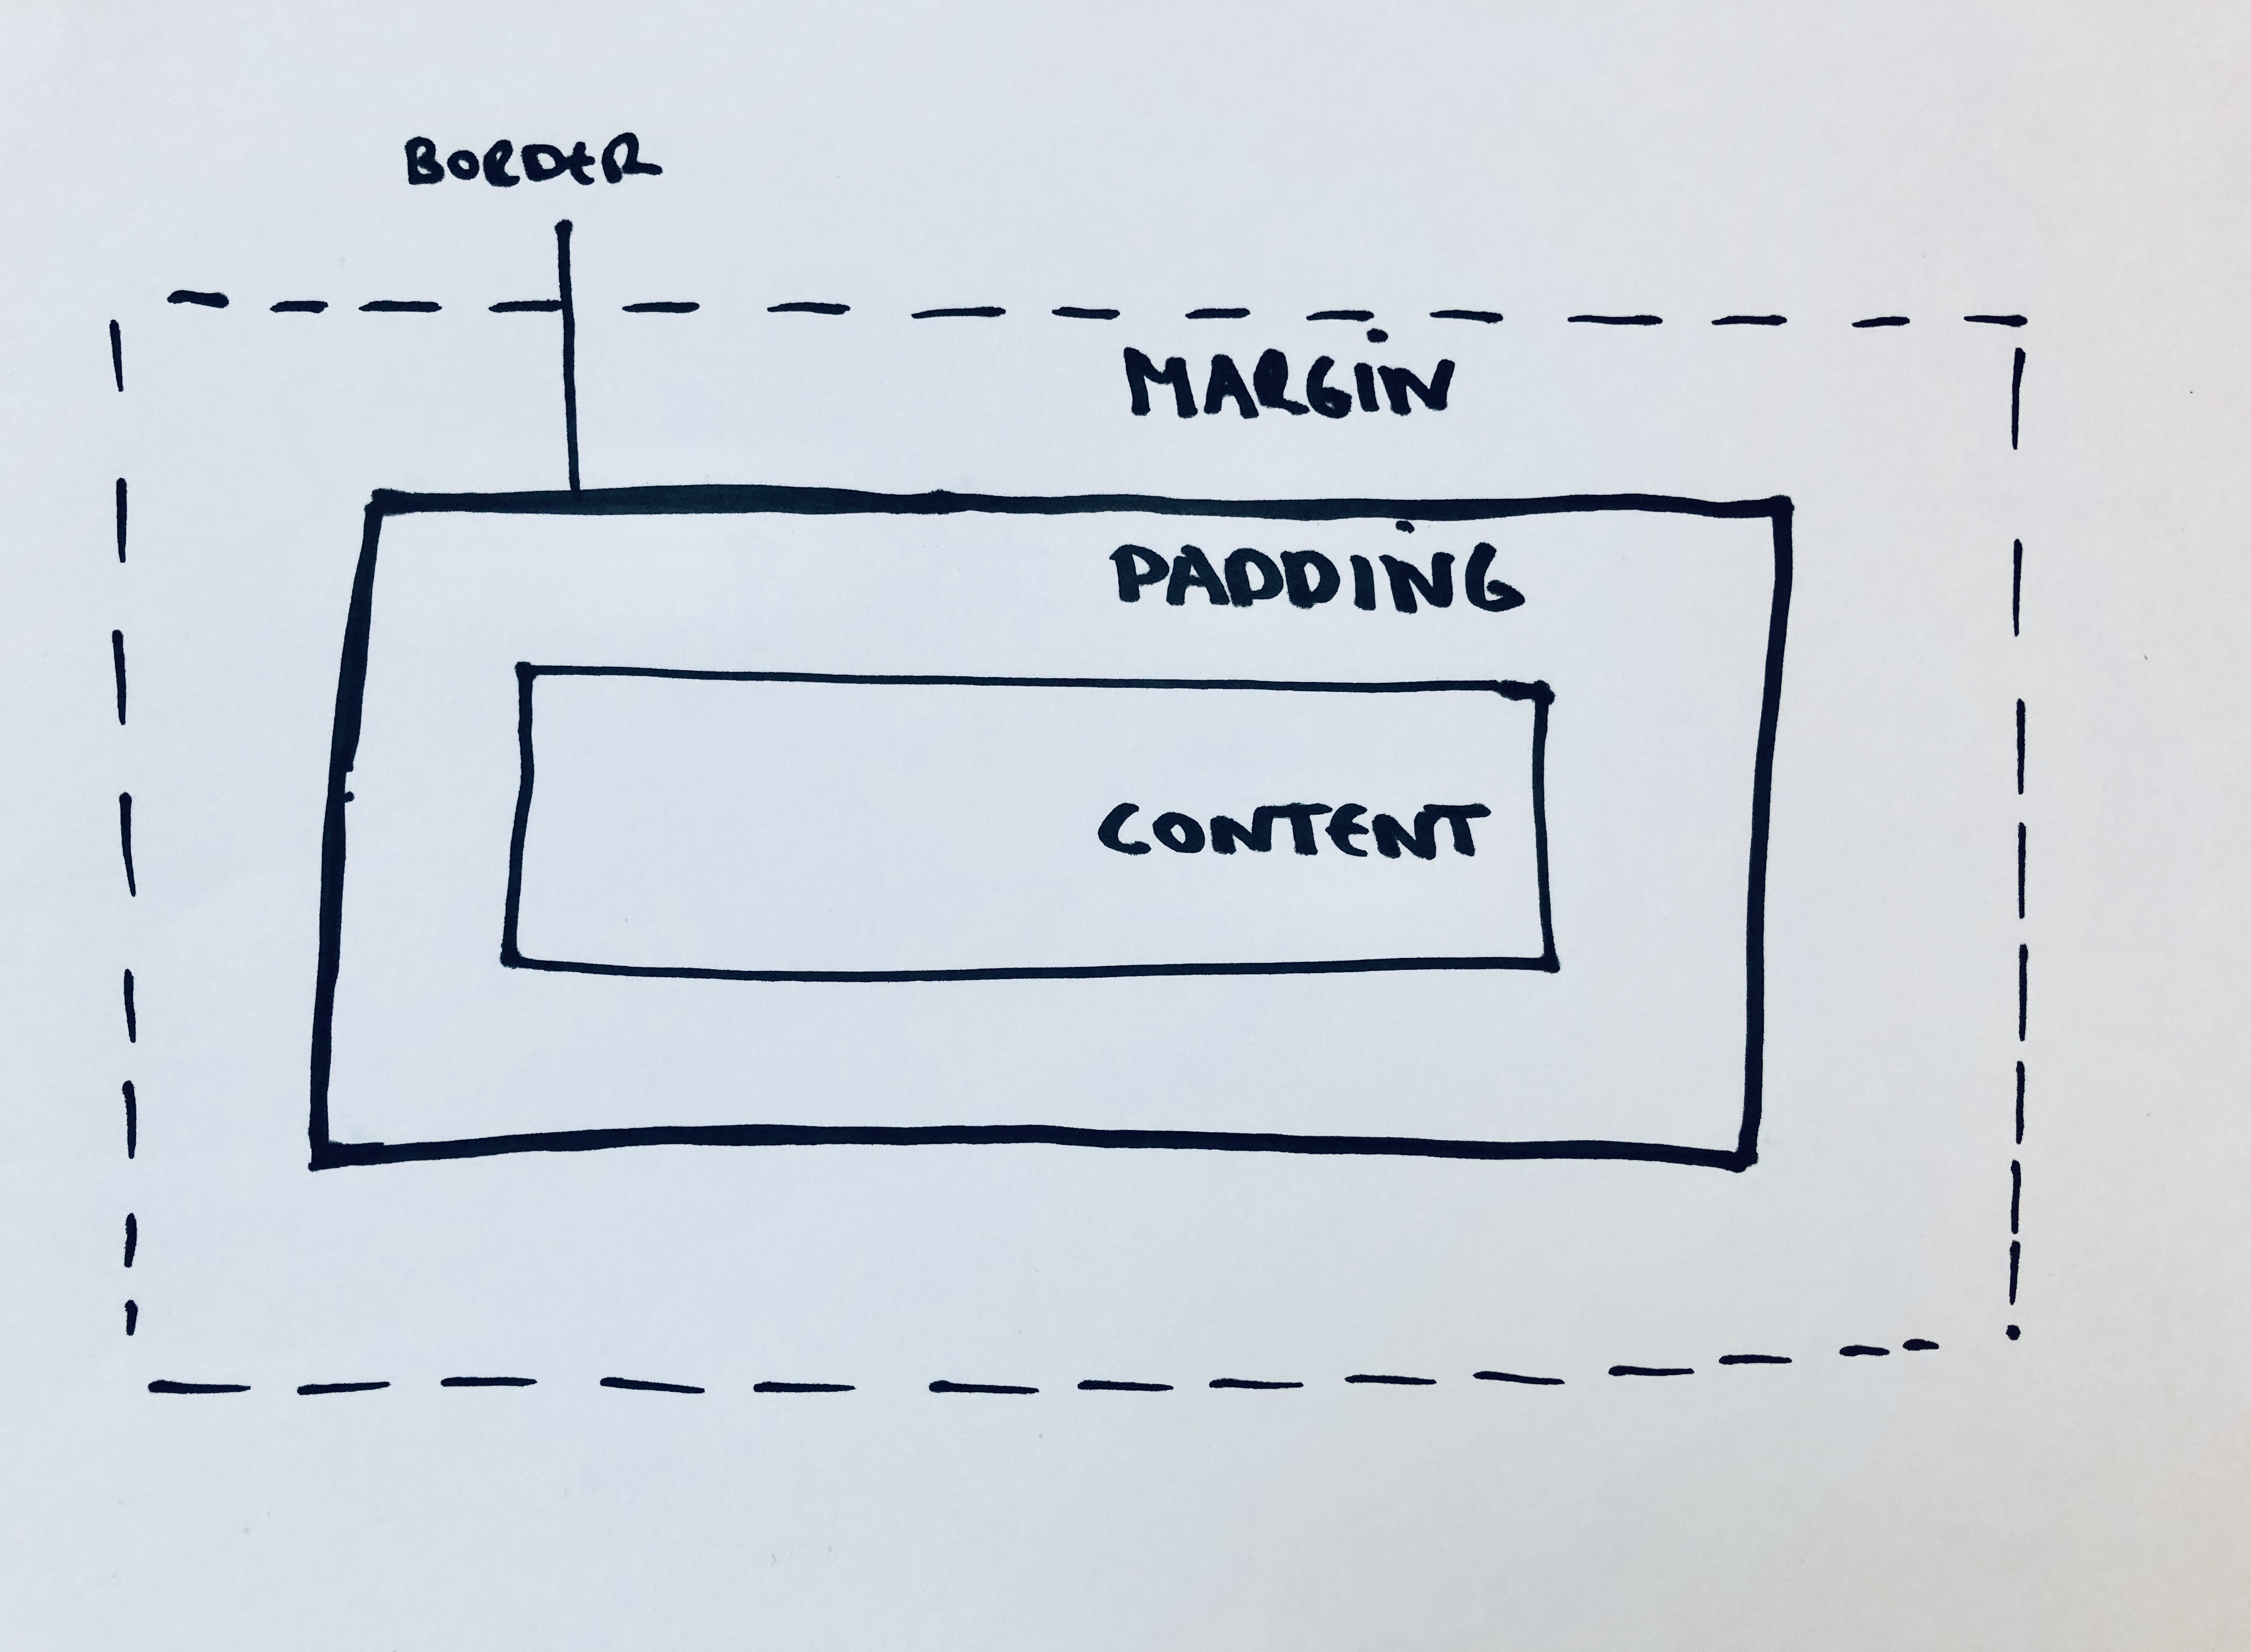 BORDER
MARGIN
PADDING
CONTENT